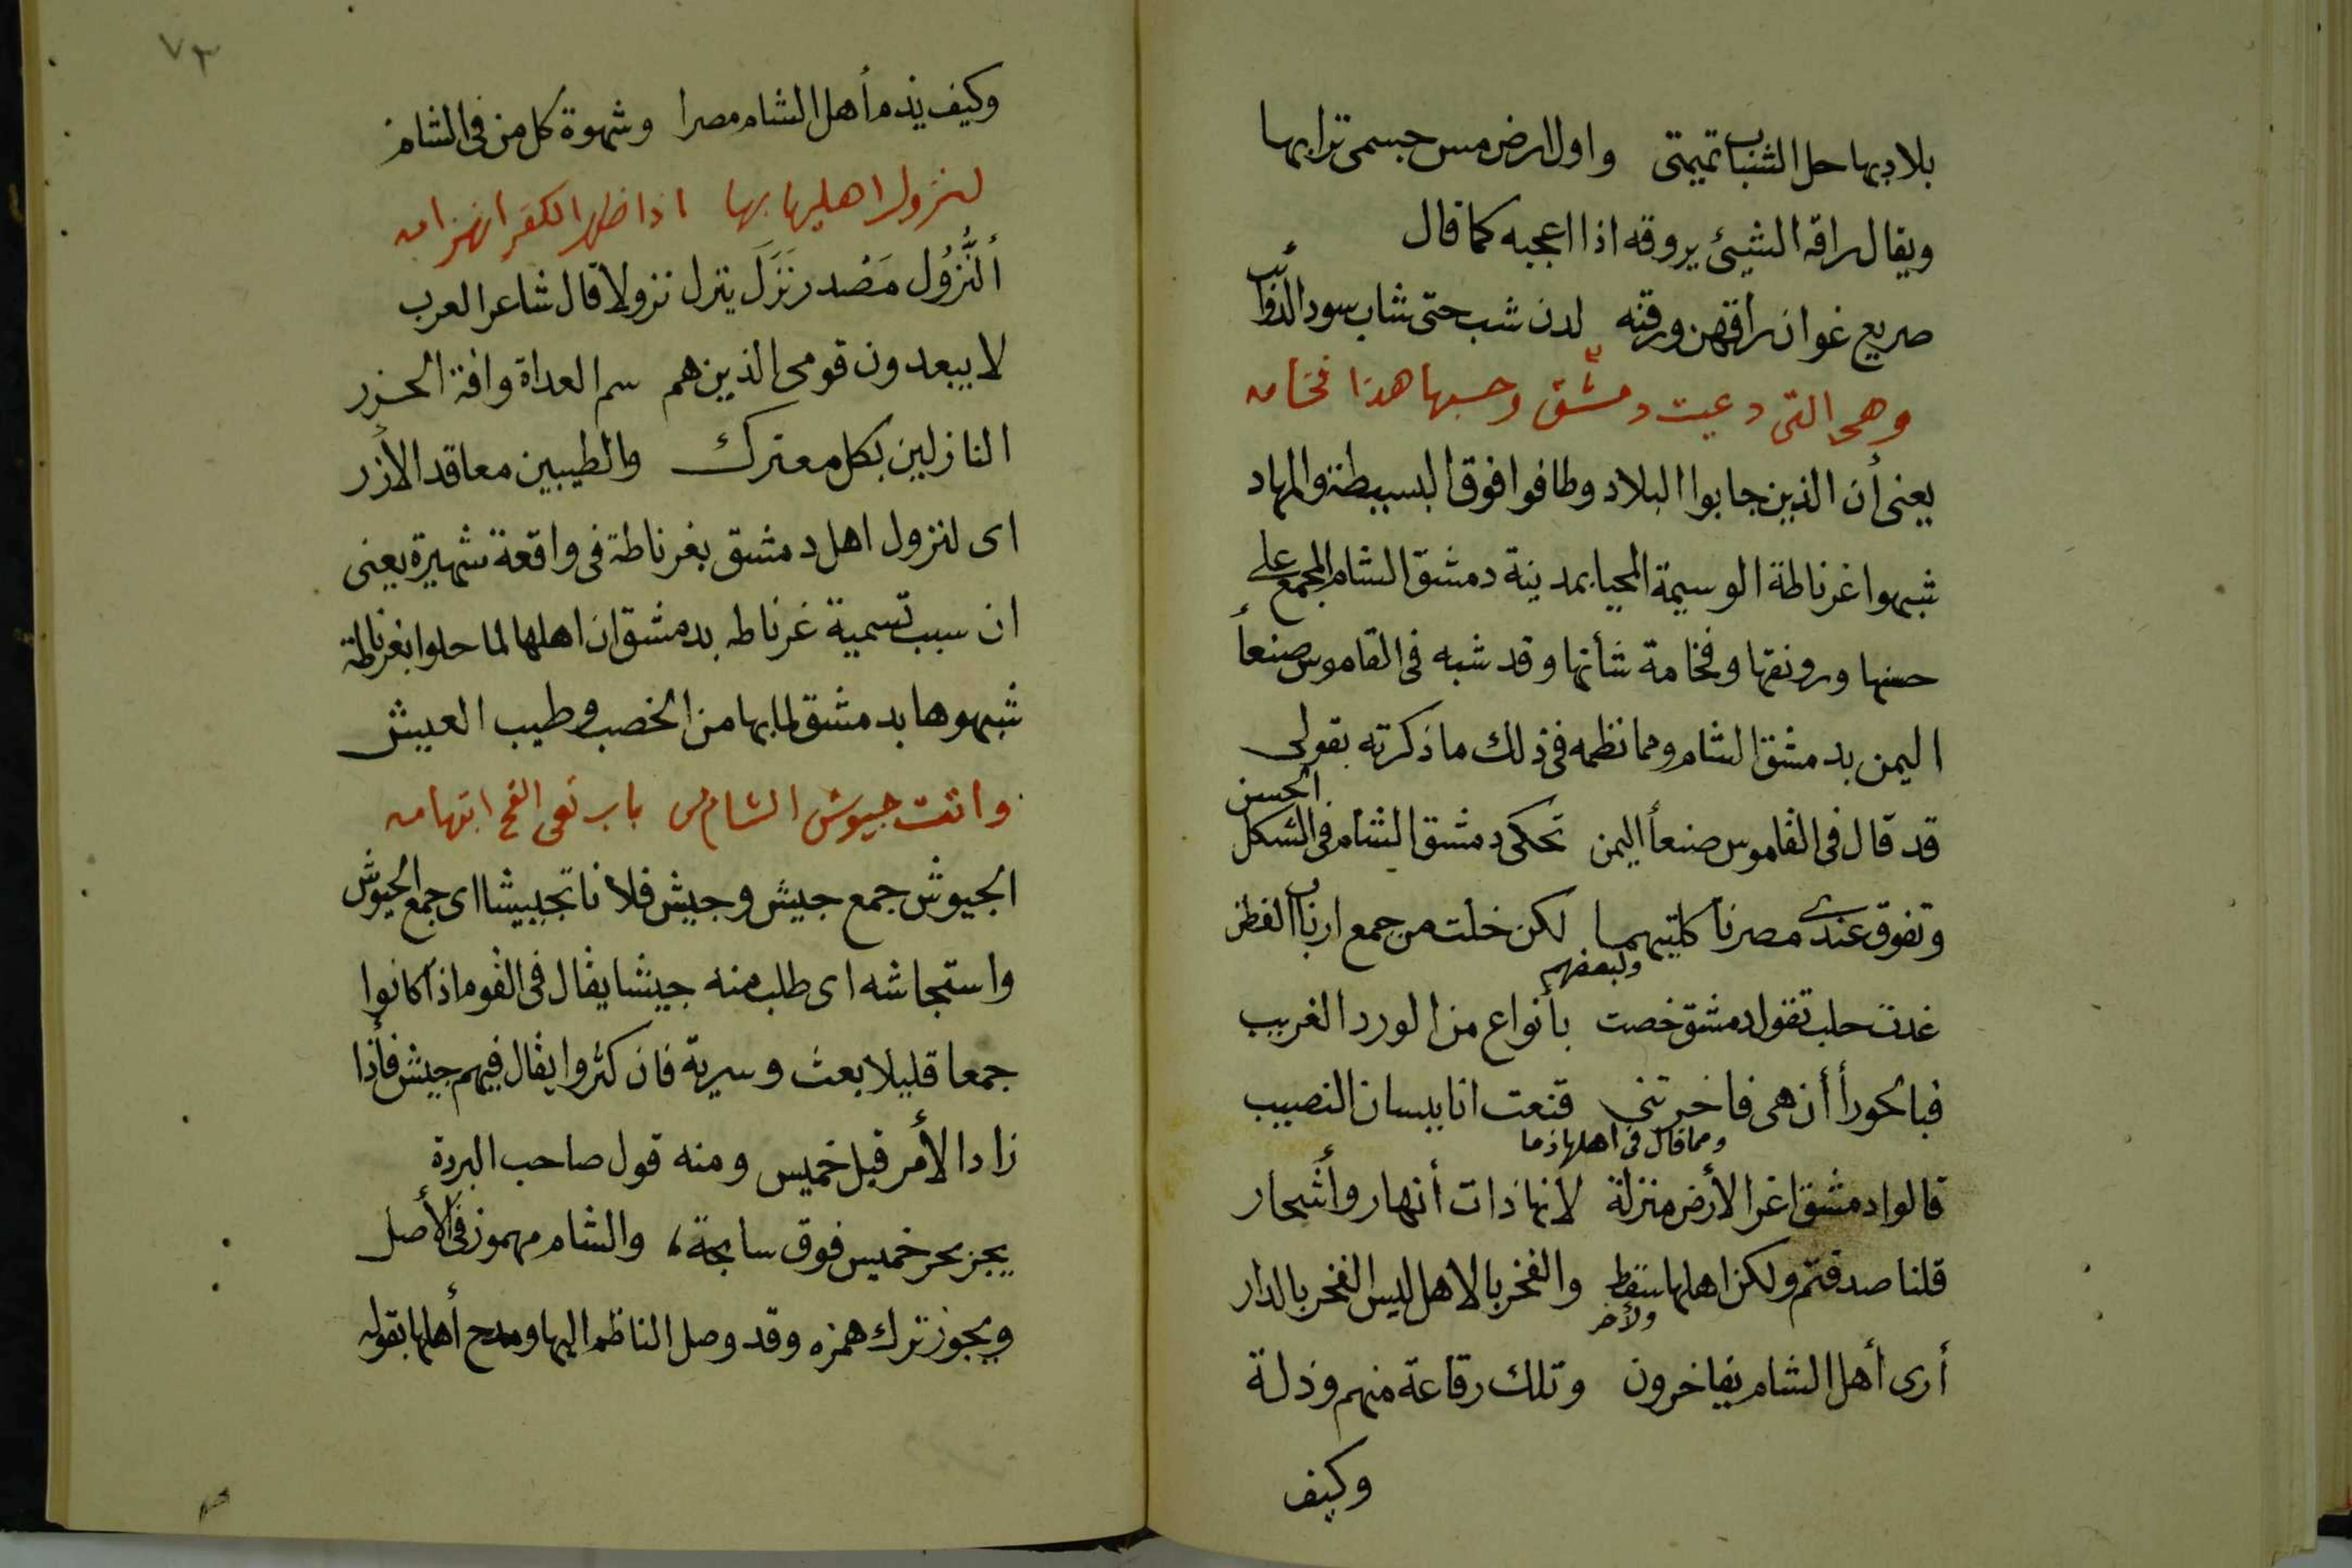 بلاد بها حل الشباب تميمتى واول ارض مس جسمى ترابها
ويقال راقه الشيئ يروقه اذا اعجبه كما قال
صريع غوان راقهن ورقنه لدن شب حتى شاب سود الذوائب
وهى التى دعيت دمشق وحسبها هذا فخامه
يعنى أن الذين جابوا البلاد وطافوا فوق البسيطة والمهاد
شبهوا غرناطة الوسيمة المحيا بمدينة دمشق الشام المجمع على
حسنها ورونقها وفخامة شأنها وقد شبه فى القاموس صنعأ
اليمن بدمشق الشام ومما نظمه فى ذلك ما ذكرته بقولى
قد قال فى القاموس صنعأ اليمن تحكى دمشق الشام فى الشكل الحسن
وتفوق عندى مصرنا كلتيهما لكن خلت من جمع ارباب الفطن
ولبعضهم
غدت حلب تقول دمشق خصت بأنواع من الورد الغريب
فبالحورأ أن هى فاخرتنى قنعت انا ببسان النصيب
ومما قال فى اهلها ذما
قالوا دمشق اغر الأرض منزلة لانها ذات أنهار وأشجار
قلنا صدقتم ولكن اهلها سقط والفخر بالاهل ليس الفخر بالدار
ولأخر
أرى أهل الشام يفاخرون وتلك رقاعة منهم وذلة
وكيف
٧٣
وكيف يذم أهل الشام مصرا وشهوة كل من فى الشام
لنزول اهليها بها اذا ظهر الكفر انهزامه
ألنُّزُول مَصْدر نَزَلَ ينزل نزولا قال شاعر العرب
لا يبعدون قومى الذين هم سم العداة وافة الجزر
النازلين بكل معترك والطيبين معاقد الأزر
اى لنزول اهل دمشق بغرناطة فى واقعة شهيرة يعنى
ان سبب تسمية غرناطه بدمشق ان اهلها لما حلوا بغرناطة
شبهوها بدمشق لما بها من الخصب وطيب العيش
واتت جيوش الشام من باب نفى الفتح ابتهامه
الجيوش جمع جيش وجيش فلانا تجييشا اى جمع الجيوش
واستجاشه اى طلب منه جيشا يقال فى القوم اذا كانوا
جمعا قليلا بعث وسرية فان كثروا يقال فيهم جيش فأذا
زاد الأمر قيل خميس ومنه قول صاحب البردة
يجر بحر خميس فوق سابحة، والشام مهموز فى الأصل
ويجوز ترك همزه وقد وصل الناظم اليها ومدح أهلها بقوله